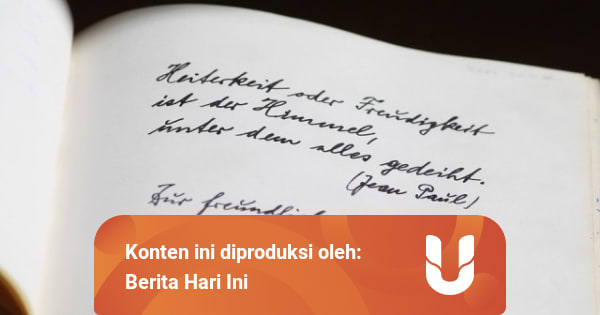 Heiterkeit oder Freudigkeit
ist der Himmel,
unter dem alles gedeiht.
(Jean Paul)
Zur freundli
Konten ini diproduksi oleh:
Berita Hari Ini